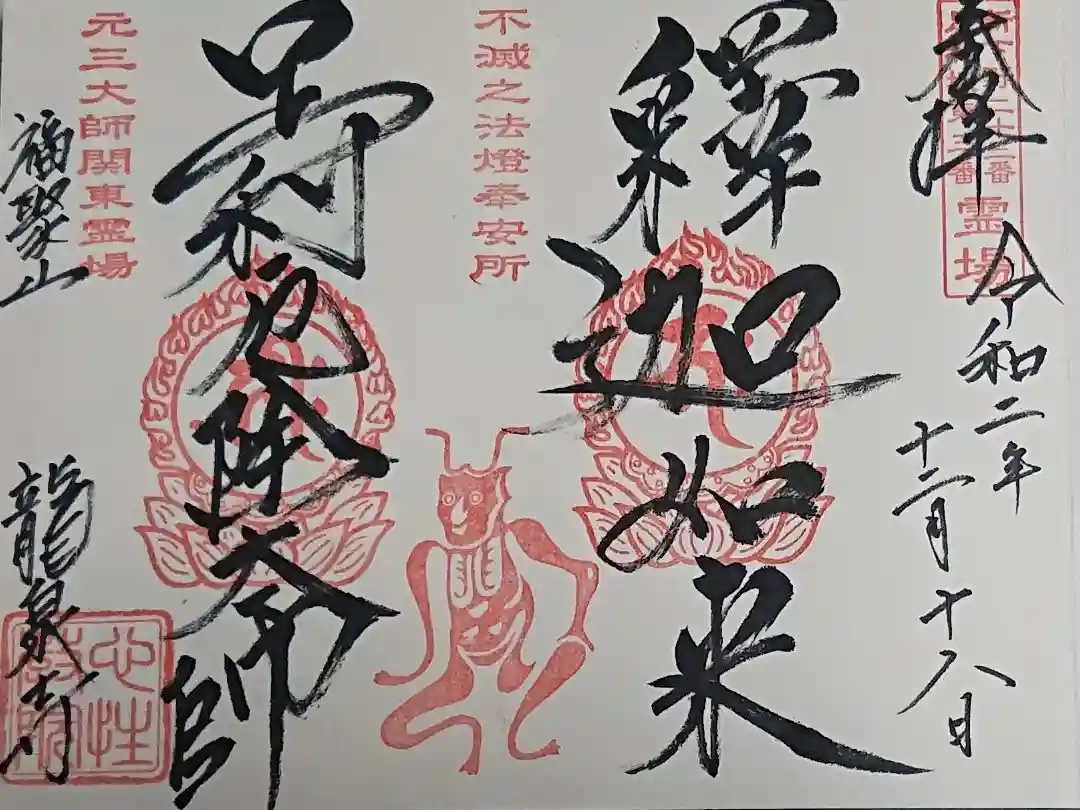 奉拝
霊場
令和二年
十二月十八日
釋迦如来
不滅之法燈奉安所
降大師
元三大師関東霊場
福聚山
龍泉寺
心性